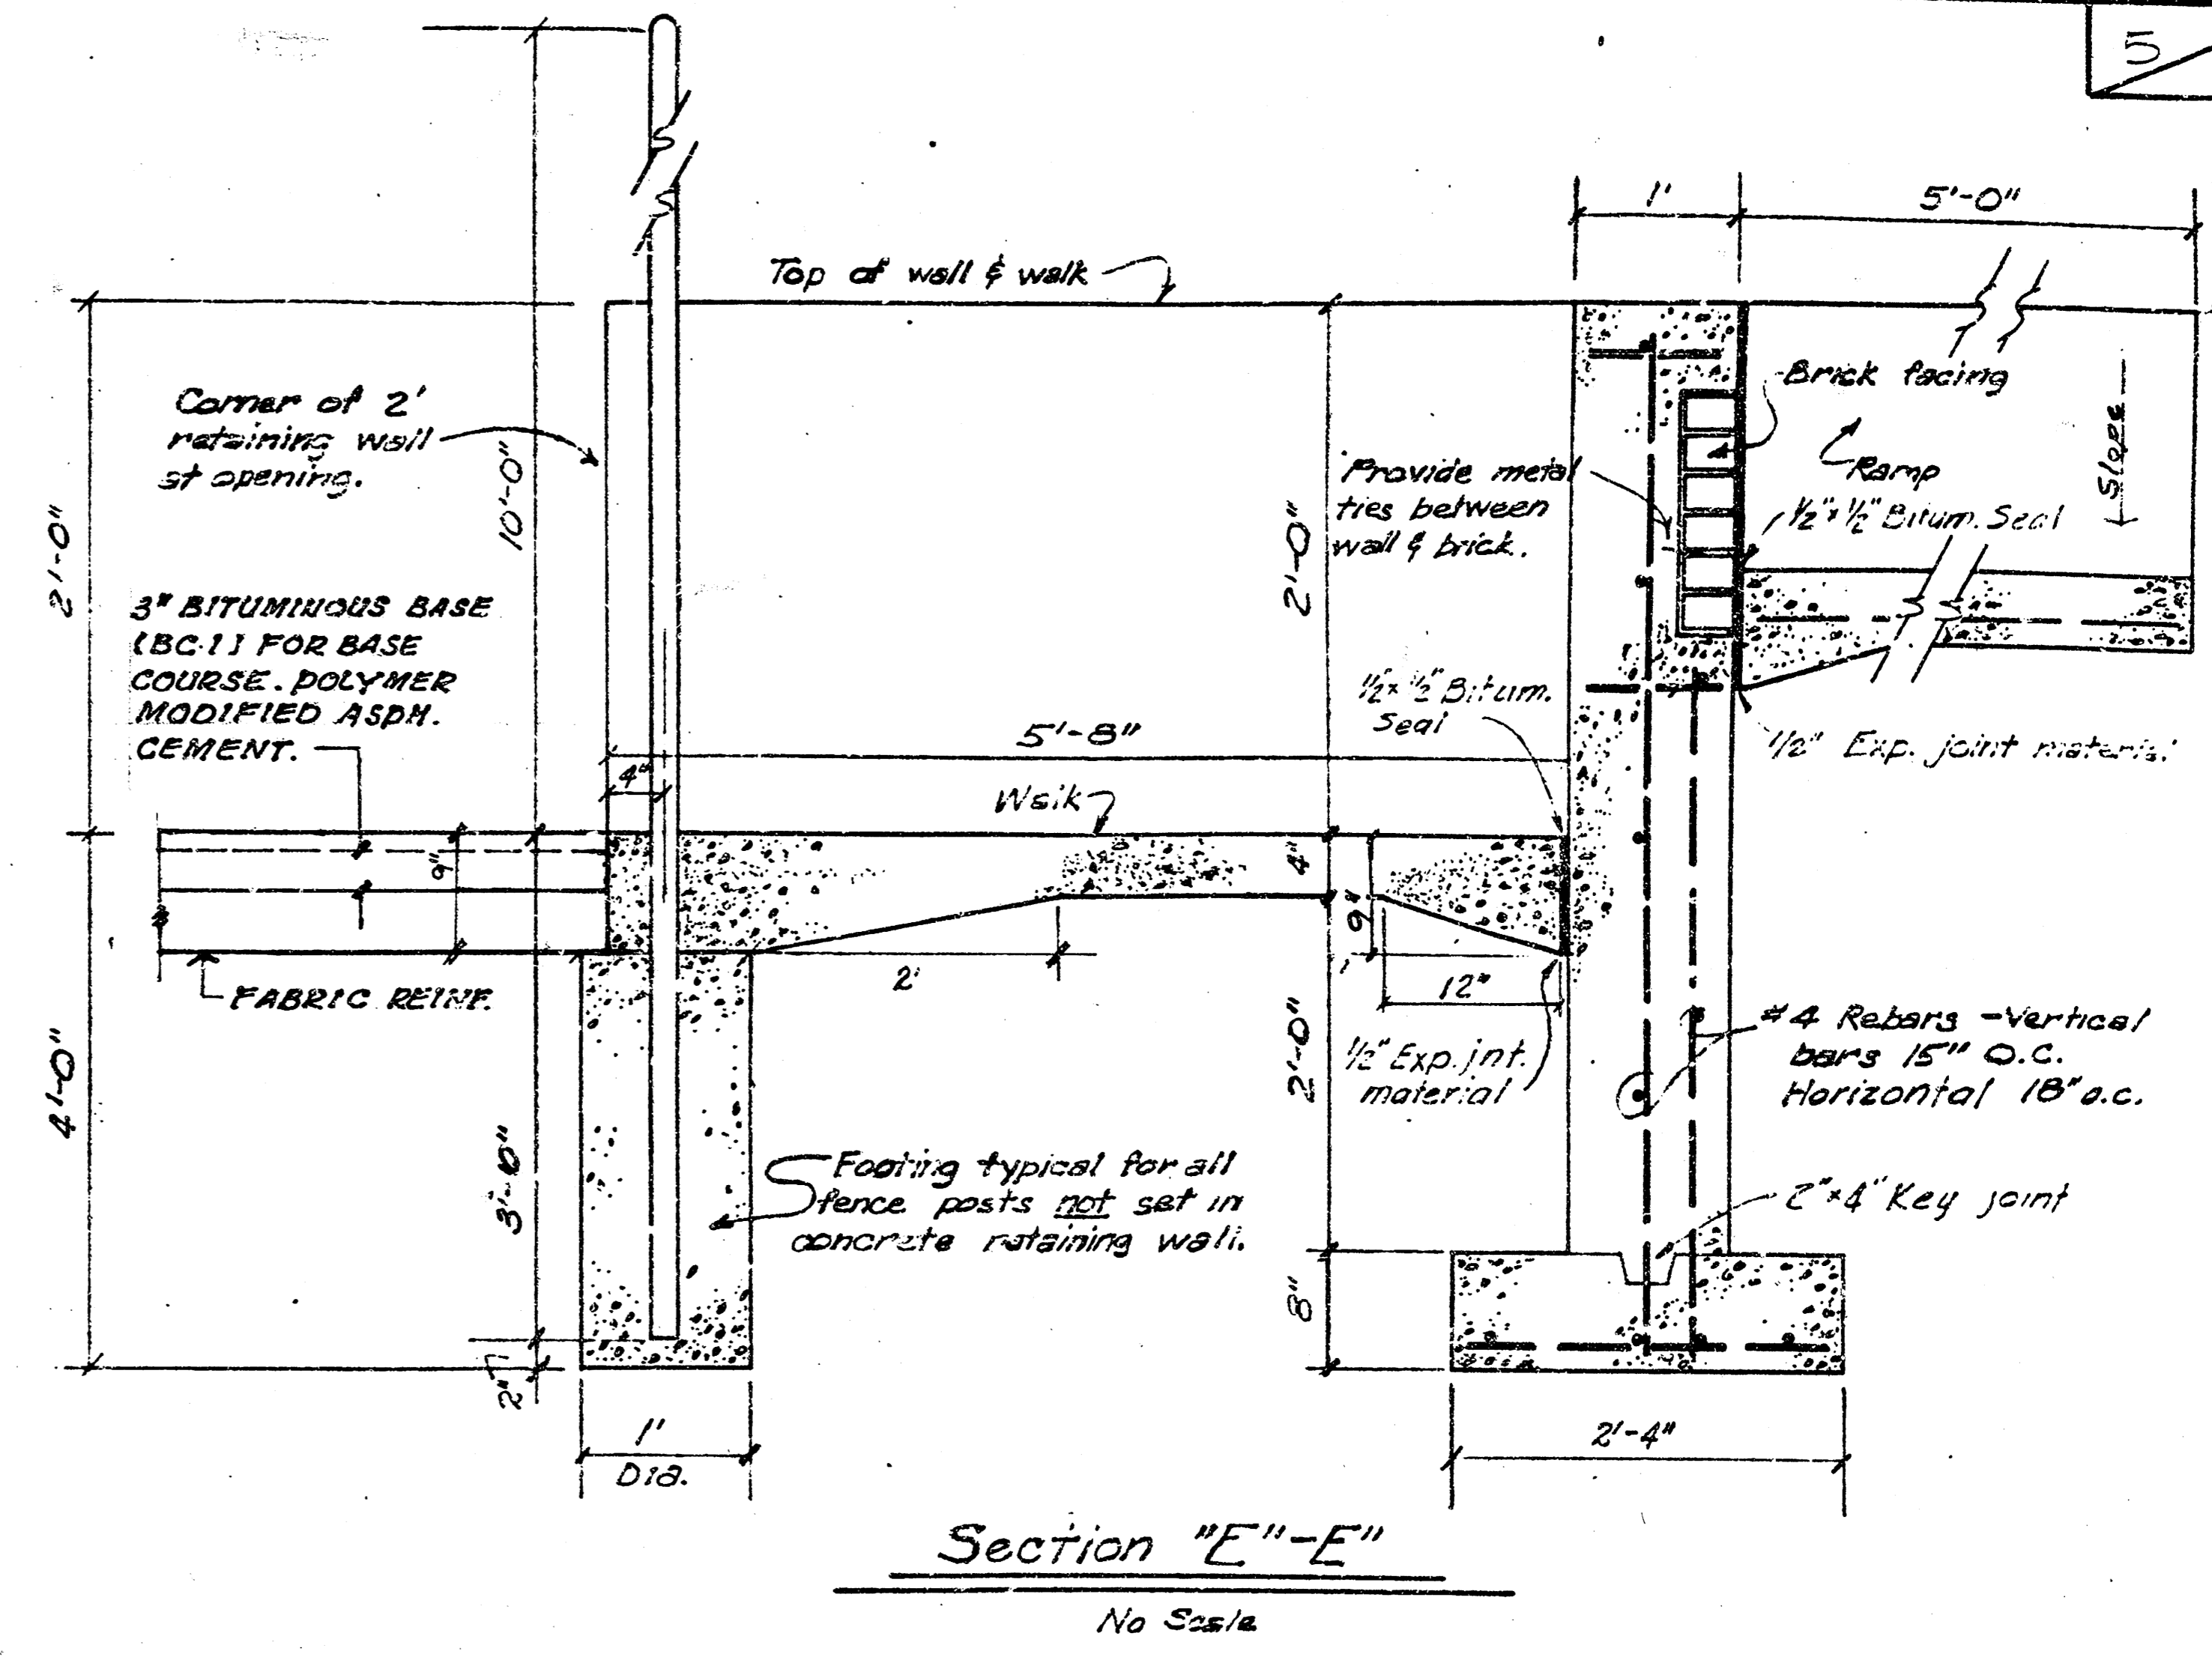 5
1'
5'-0"
Top of wall & walk
Corner of 2'
retaining wall
at opening.
10'-0"
2'-0"
2'-0"
Brick facing
Ramp
Slope
Provide metal
ties between
wall & brick.
1/2" x 1/2" Bitum. Seal
3" BITUMINOUS BASE
(BC-1) FOR BASE
COURSE. POLYMER
MODIFIED ASPH.
CEMENT.
1/2" x 1/2" Bitum.
Seal
1/2" Exp. joint material
5'-8"
4"
Walk
9"
4"
9"
2'
12"
FABRIC REINF.
4'-0"
3'-6"
2'-0"
1/2" Exp. jnt.
material
#4 Rebars - Vertical
bars 15" O.C.
Horizontal 18" o.c.
Footing typical for all
fence posts not set in
concrete retaining wall.
2"x4" Key joint
8"
2"
1'
Dia.
2'-4"
Section "E"-E"
No Scale